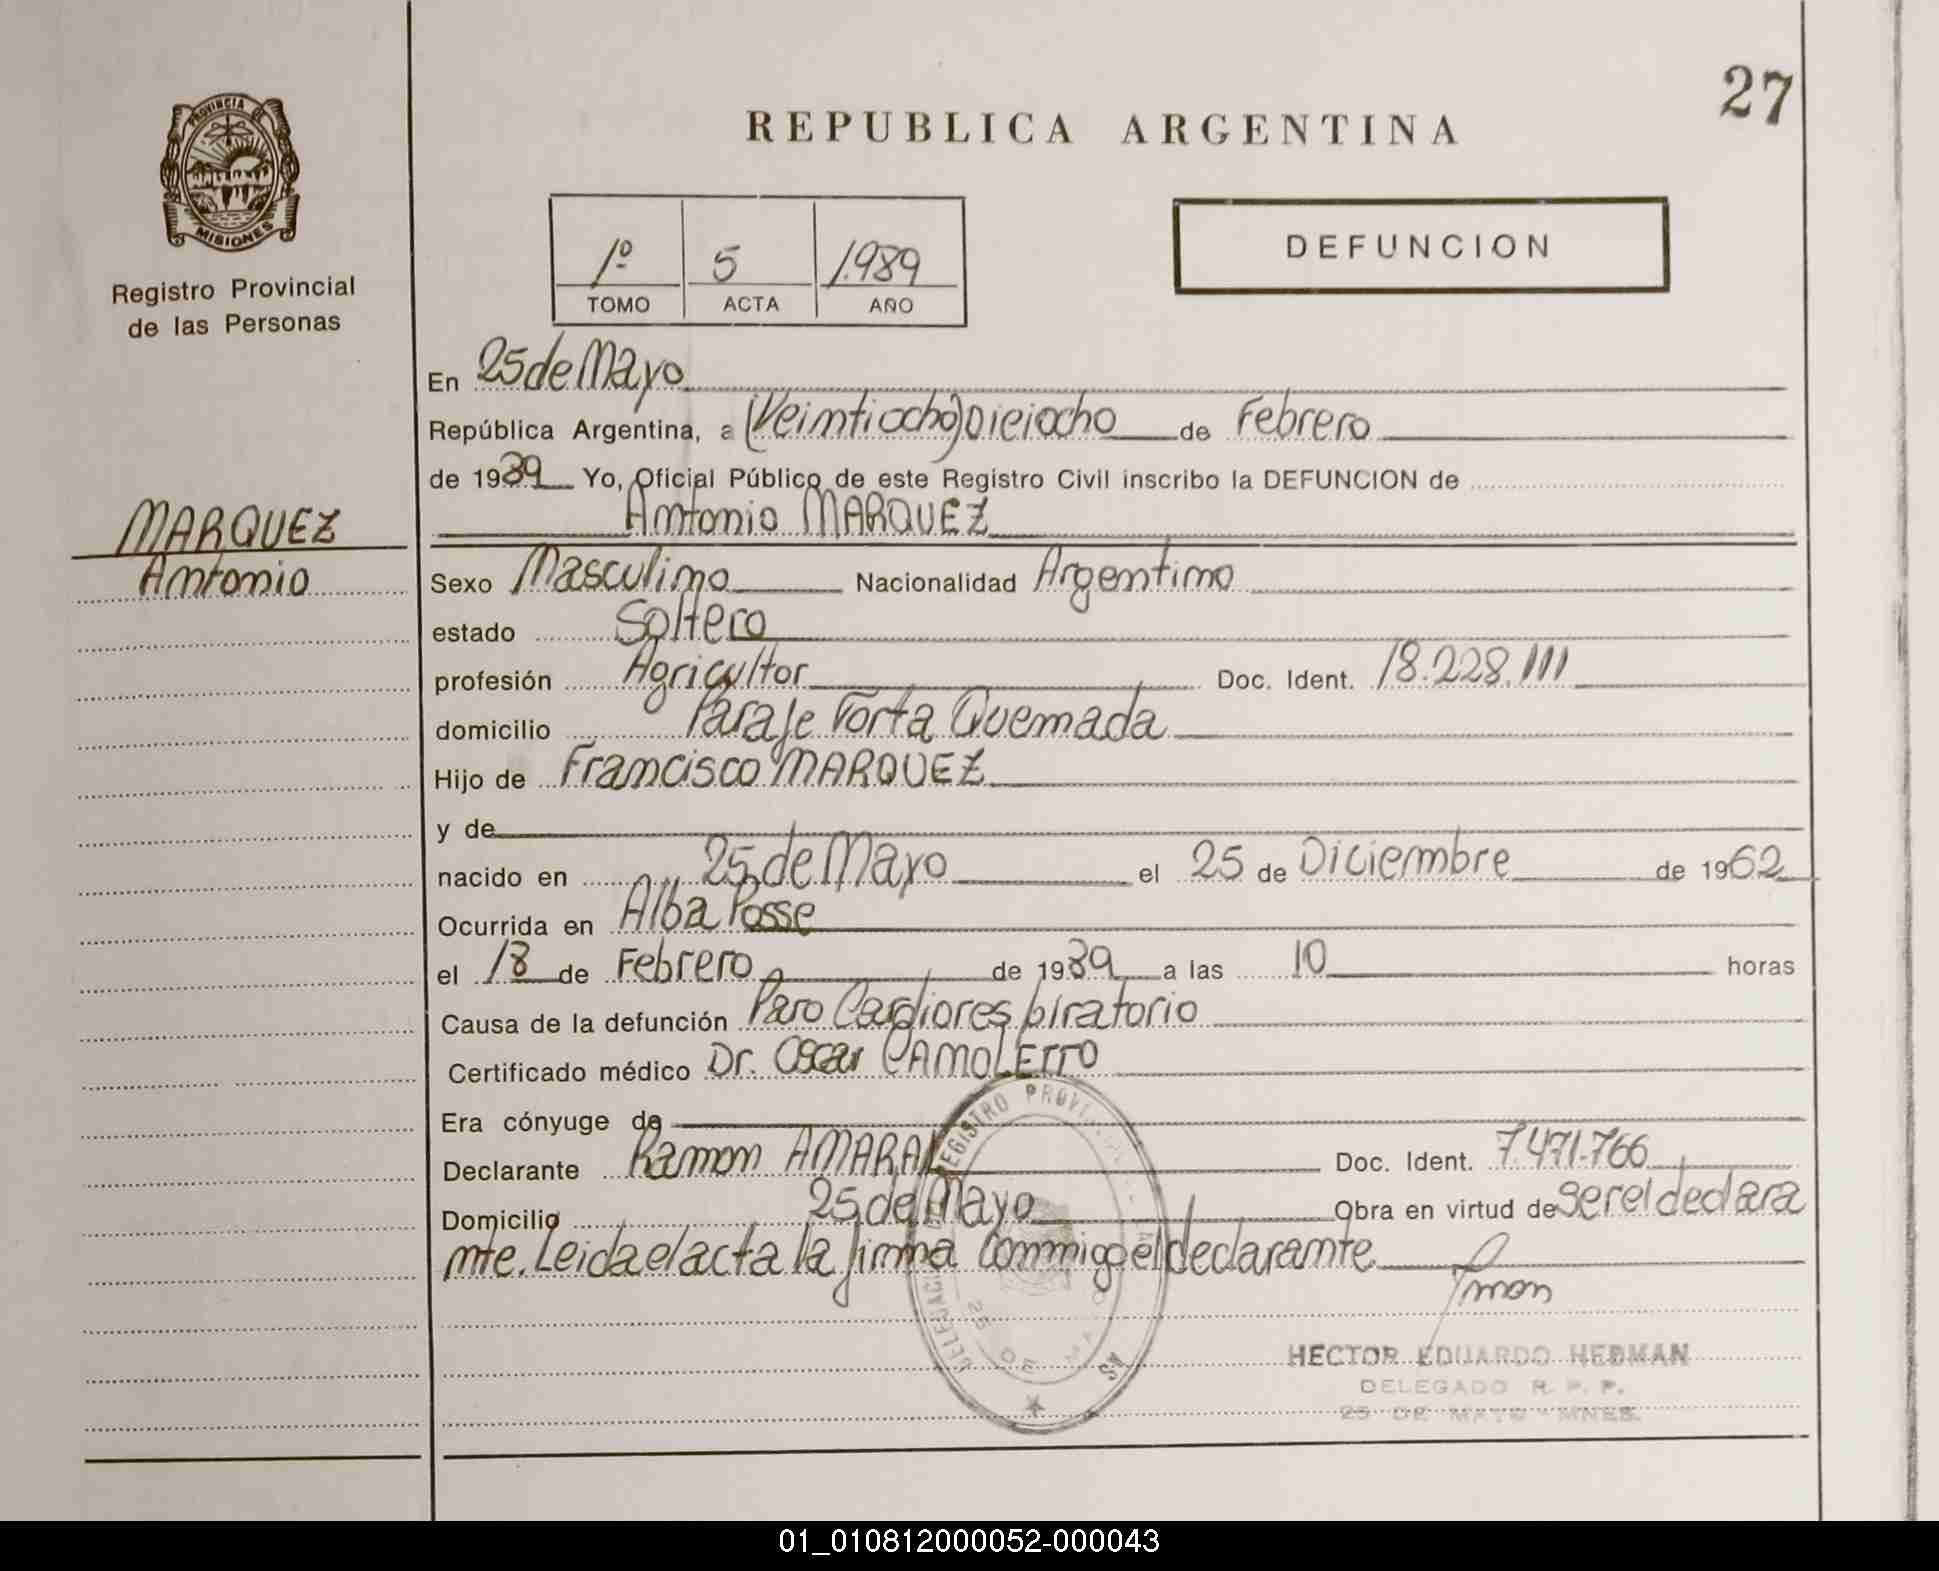 27
REPUBLICA ARGENTINA
PROVINCIA DE
MISIONES
Registro Provincial
de las Personas
1º 5 1.989
TOMO ACTA AÑO
DEFUNCION
En 25 de Mayo
República Argentina, a (Veintiocho) Dieiocho de Febrero
de 1989 Yo, Oficial Público de este Registro Civil inscribo la DEFUNCION de
Antonio MARQUEZ
MARQUEZ
Antonio
Sexo Masculino Nacionalidad Argentino
estado Soltero
profesión Agricultor Doc. Ident. 18.228.111
domicilio Paraje Torta Quemada
Hijo de Francisco MARQUEZ
y de
nacido en 25 de Mayo el 25 de Diciembre de 1962
Ocurrida en Alba Posse
el 18 de Febrero de 1989 a las 10 horas
Causa de la defunción Paro Cardiorespiratorio
Certificado médico Dr. Oscar CAMOLETTO
Era cónyuge de
Declarante Ramon AMARAL Doc. Ident. 7.471.766
Domicilio 25 de Mayo Obra en virtud de ser el declara
nte. Leida el acta la firma conmigo el declarante
HECTOR EDUARDO HEDMAN
DELEGADO R. P. P.
25 DE MAYO - MNES.
01_010812000052-000043